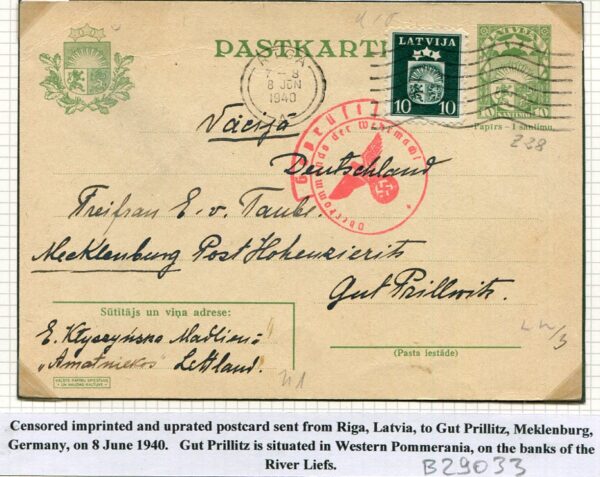 u-o
PASTKARTE
LATVIJA
10 10
LATVIJA
10 SANTIMU 10
Papīrs - 1 santims.
238
RIGA
7-8
8 JUN
1940
Vācijā
Deutschland
Geprüft
Oberkommando der Wehrmacht
Freifrau E. v. Taube.
Mecklenburg Post Hohenzieritz
Gut Prillwitz.
Sūtītājs un viņa adrese:
E. Kłyszyńska Madlienā
"Amatniekos" Lettland.
(Pasta iestāde)
VALSTS PAPĪRU SPIESTUVE
UN NAUDAS KALTUVE
Censored imprinted and uprated postcard sent from Riga, Latvia, to Gut Prillitz, Meklenburg,
Germany, on 8 June 1940. Gut Prillitz is situated in Western Pommerania, on the banks of the
River Liefs.
B29033